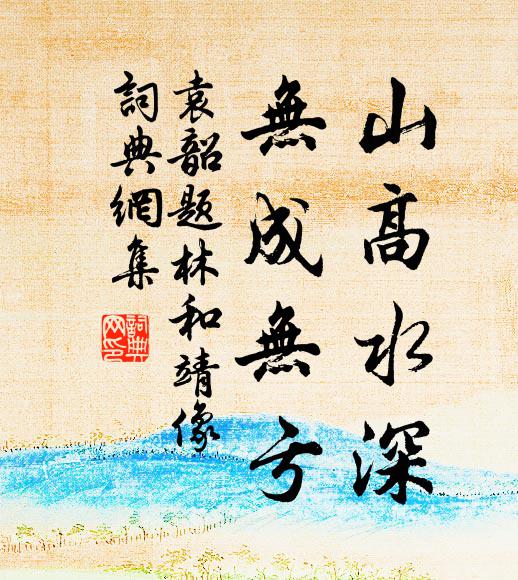 山高水深
無成無亏
袁韶题林和靖像
詞典網集
詞典
网印